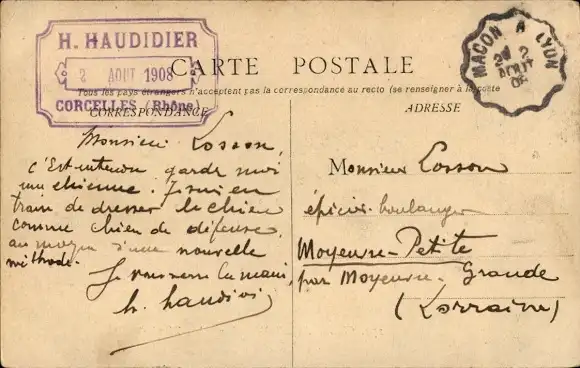 H. HAUDIDIER
2 AOUT 1908
CORCELLES (Rhône)
CARTE POSTALE
MACON A LYON
2
AOUT
08
Tous les pays étrangers n'acceptent pas la correspondance au recto (se renseigner à la poste
CORRESPONDANCE
ADRESSE
Monsieur Losson,
c'est entendu garde moi
une chienne. Je suis en
train de dresser le chien
comme chien de défense
au moyen d'une nouvelle
méthode.
Je vous serre la main,
h. haudidi
Monsieur Losson
épicier-boulanger
Moyeuvre-Petite
par Moyeuvre-Grande
(Lorraine)